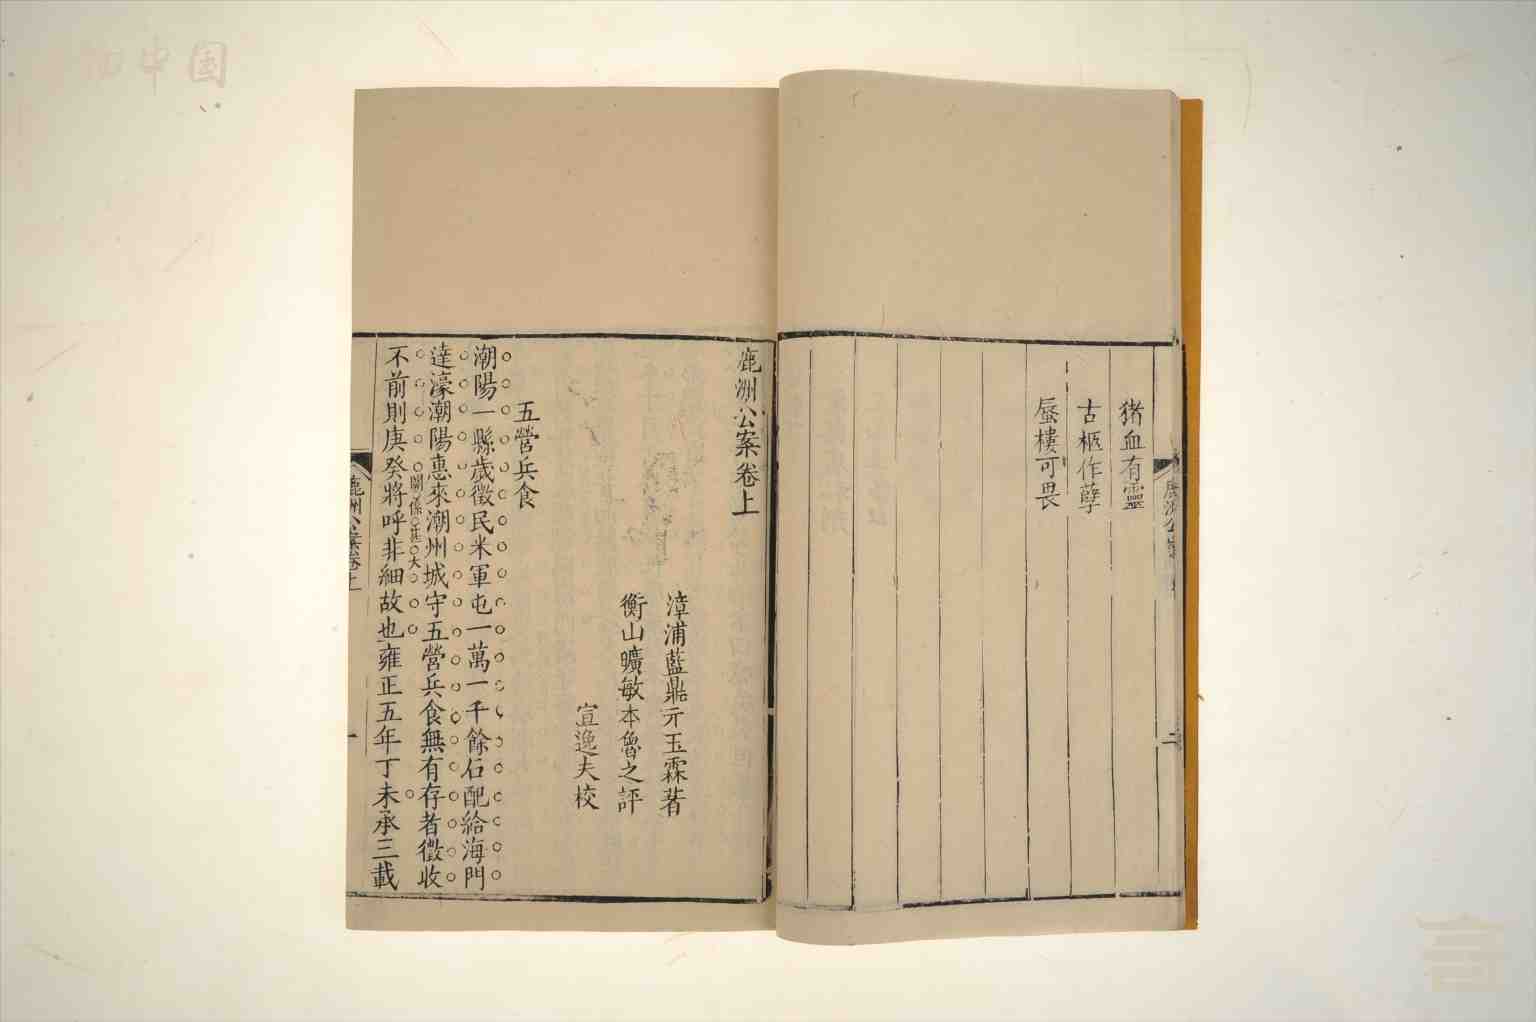 猪血有靈
古柩作孽
蜃樓可畏
二
鹿洲公案卷上
漳浦藍鼎元玉霖著
衡山曠敏本魯之評
宣逸夫校
五營兵食
潮陽一縣歲徵民米軍屯一萬一千餘石配給海門
達濠潮陽惠來潮州城守五營兵食無有存者徵收
關係甚大
不前則庚癸將呼非細故也雍正五年丁未承三載
鹿洲公案卷上
一
中国